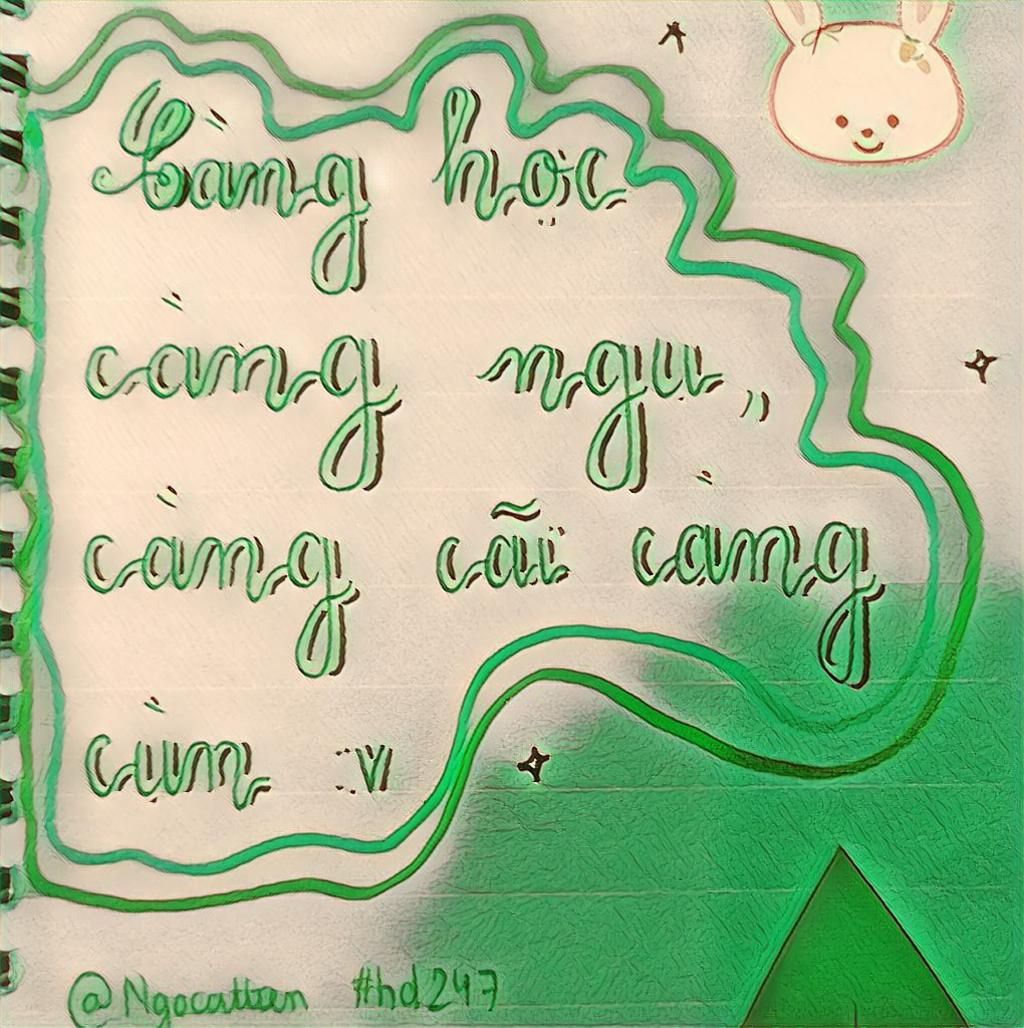 Càng học
càng ngu,,
càng cãi càng
cùn :v
@Ngocattzen #hd247